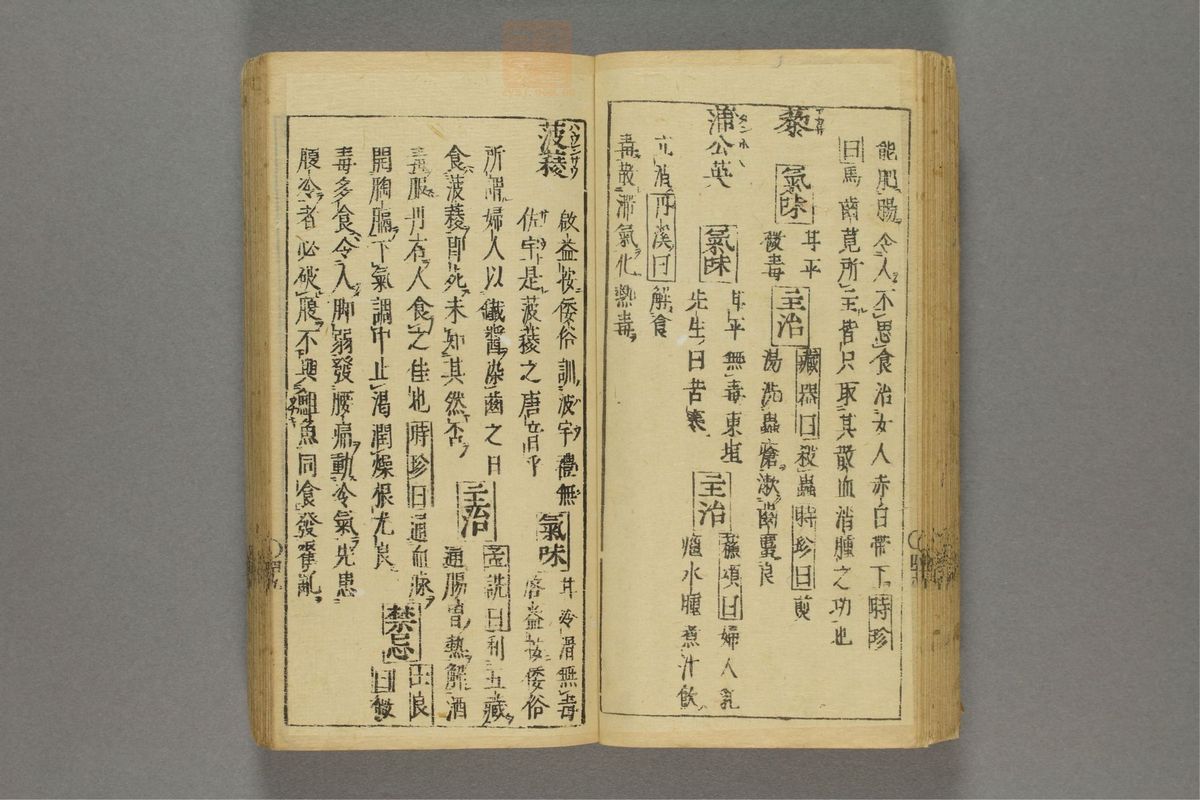 能肥腸令人不思食治女人赤白帶下時珍
曰馬齒莧所主皆只取其散血消腫之功也
藜 氣味 甘平 微毒 主治 藏器曰殺蟲時珍曰煎
湯洗蟲瘡漱齒䘌良
蒲公英 氣味 甘平無毒東垣
先生曰苦寒 主治 蘓頌曰婦人乳
癰水腫煮汁飲
立消丹溪曰解食
毒散滯氣化熱毒
菠薐 啟益按倭俗訓波宇禮無
佐宇是菠薐之唐音乎 氣味 甘冷滑無毒
啓益按倭俗
所謂婦人以鐵醬染齒之日
食菠薐即死未知其然否 主治 孟詵曰利五藏
通腸胃熱解酒
毒服丹石人食之佳也時珍曰通血脉
開胸膈下氣調中止渴潤燥根尤良 禁忌 士良
曰微
毒多食令人脚弱發腰痛動冷氣先患
腹冷者必破腹不與䱇魚同食發霍亂